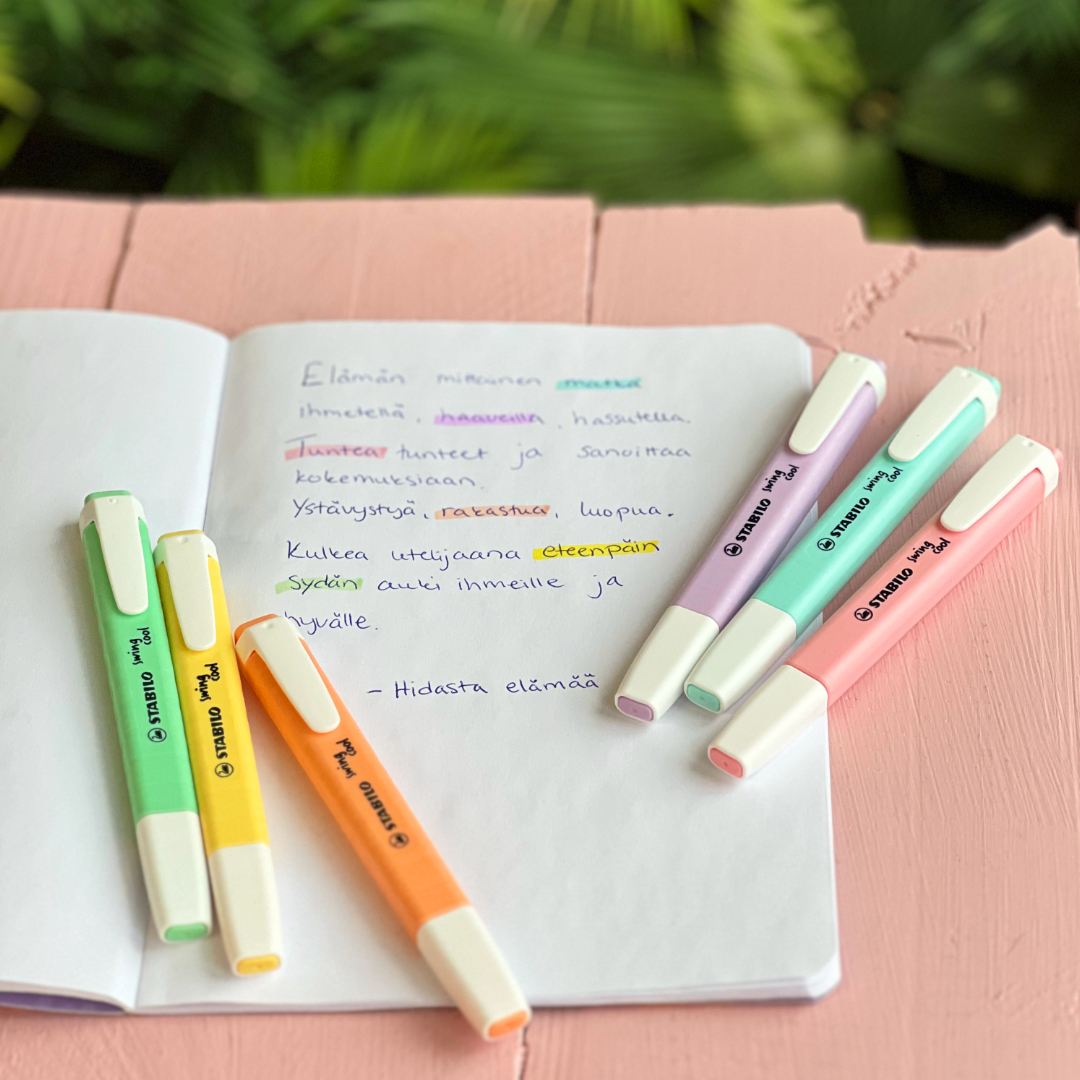 Elämän mittainen matka
ihmetellä, haaveilla, hassutella.
Tuntea tunteet ja sanoittaa
kokemuksiaan.
Ystävystyä, rakastua, luopua.
Kulkea utelijaana eteenpäin
sydän auki ihmeille ja
hyvälle.
– Hidasta elämää
STABILO swing cool
STABILO swing cool
STABILO swing cool
STABILO swing cool
STABILO swing cool
STABILO swing cool